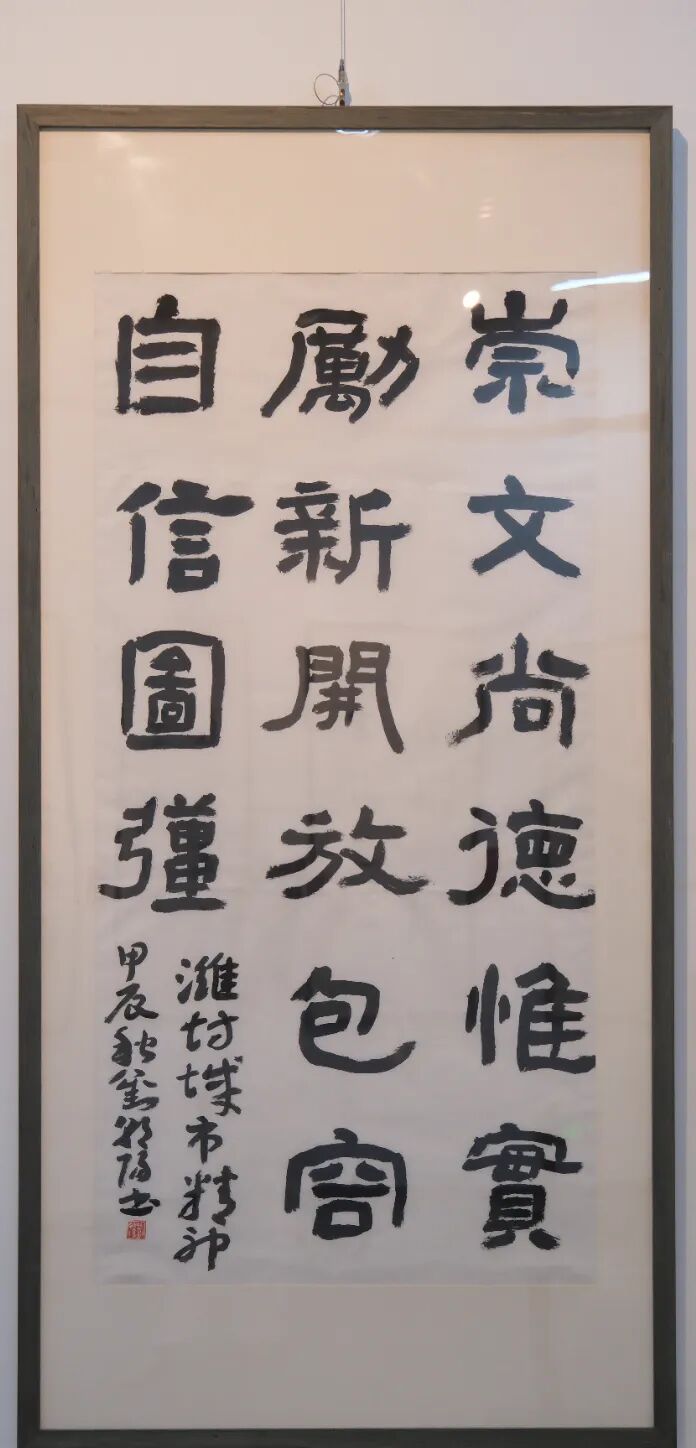 崇文尚德惟實
勵新開放包容
自信圖彊
濰坊城市精神
甲辰秋劉書